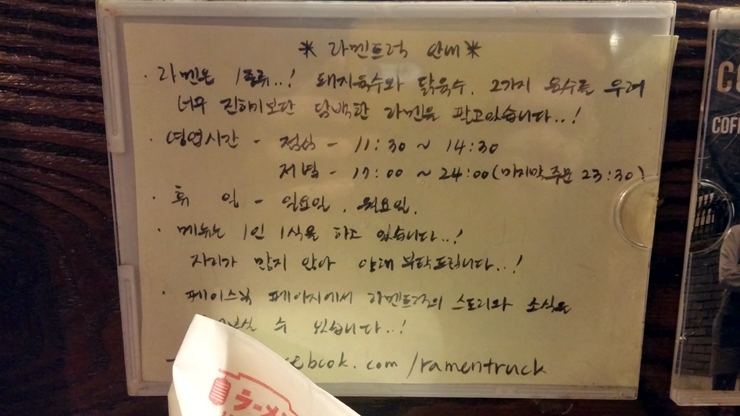 * 라멘트럭 안내 *
· 라멘은 1종류..! 돼지육수와 닭육수. 2가지 육수를 우려
너무 진하기보단 담백한 라멘을 팔고있습니다..!
· 영업시간 - 점심 - 11:30 ~ 14:30
저녁 - 17:00 ~ 24:00 (마지막 주문 23:30)
· 휴 일 - 일요일, 월요일.
· 메뉴는 1인 1식을 하고 있습니다..!
자리가 많지 않아 양해 부탁드립니다..!
· 페이스북 페이지에서 라멘트럭의 스토리와 소식을
수 있습니다..!
ebook.com/ramentruck
ラーメン
CO
COFF